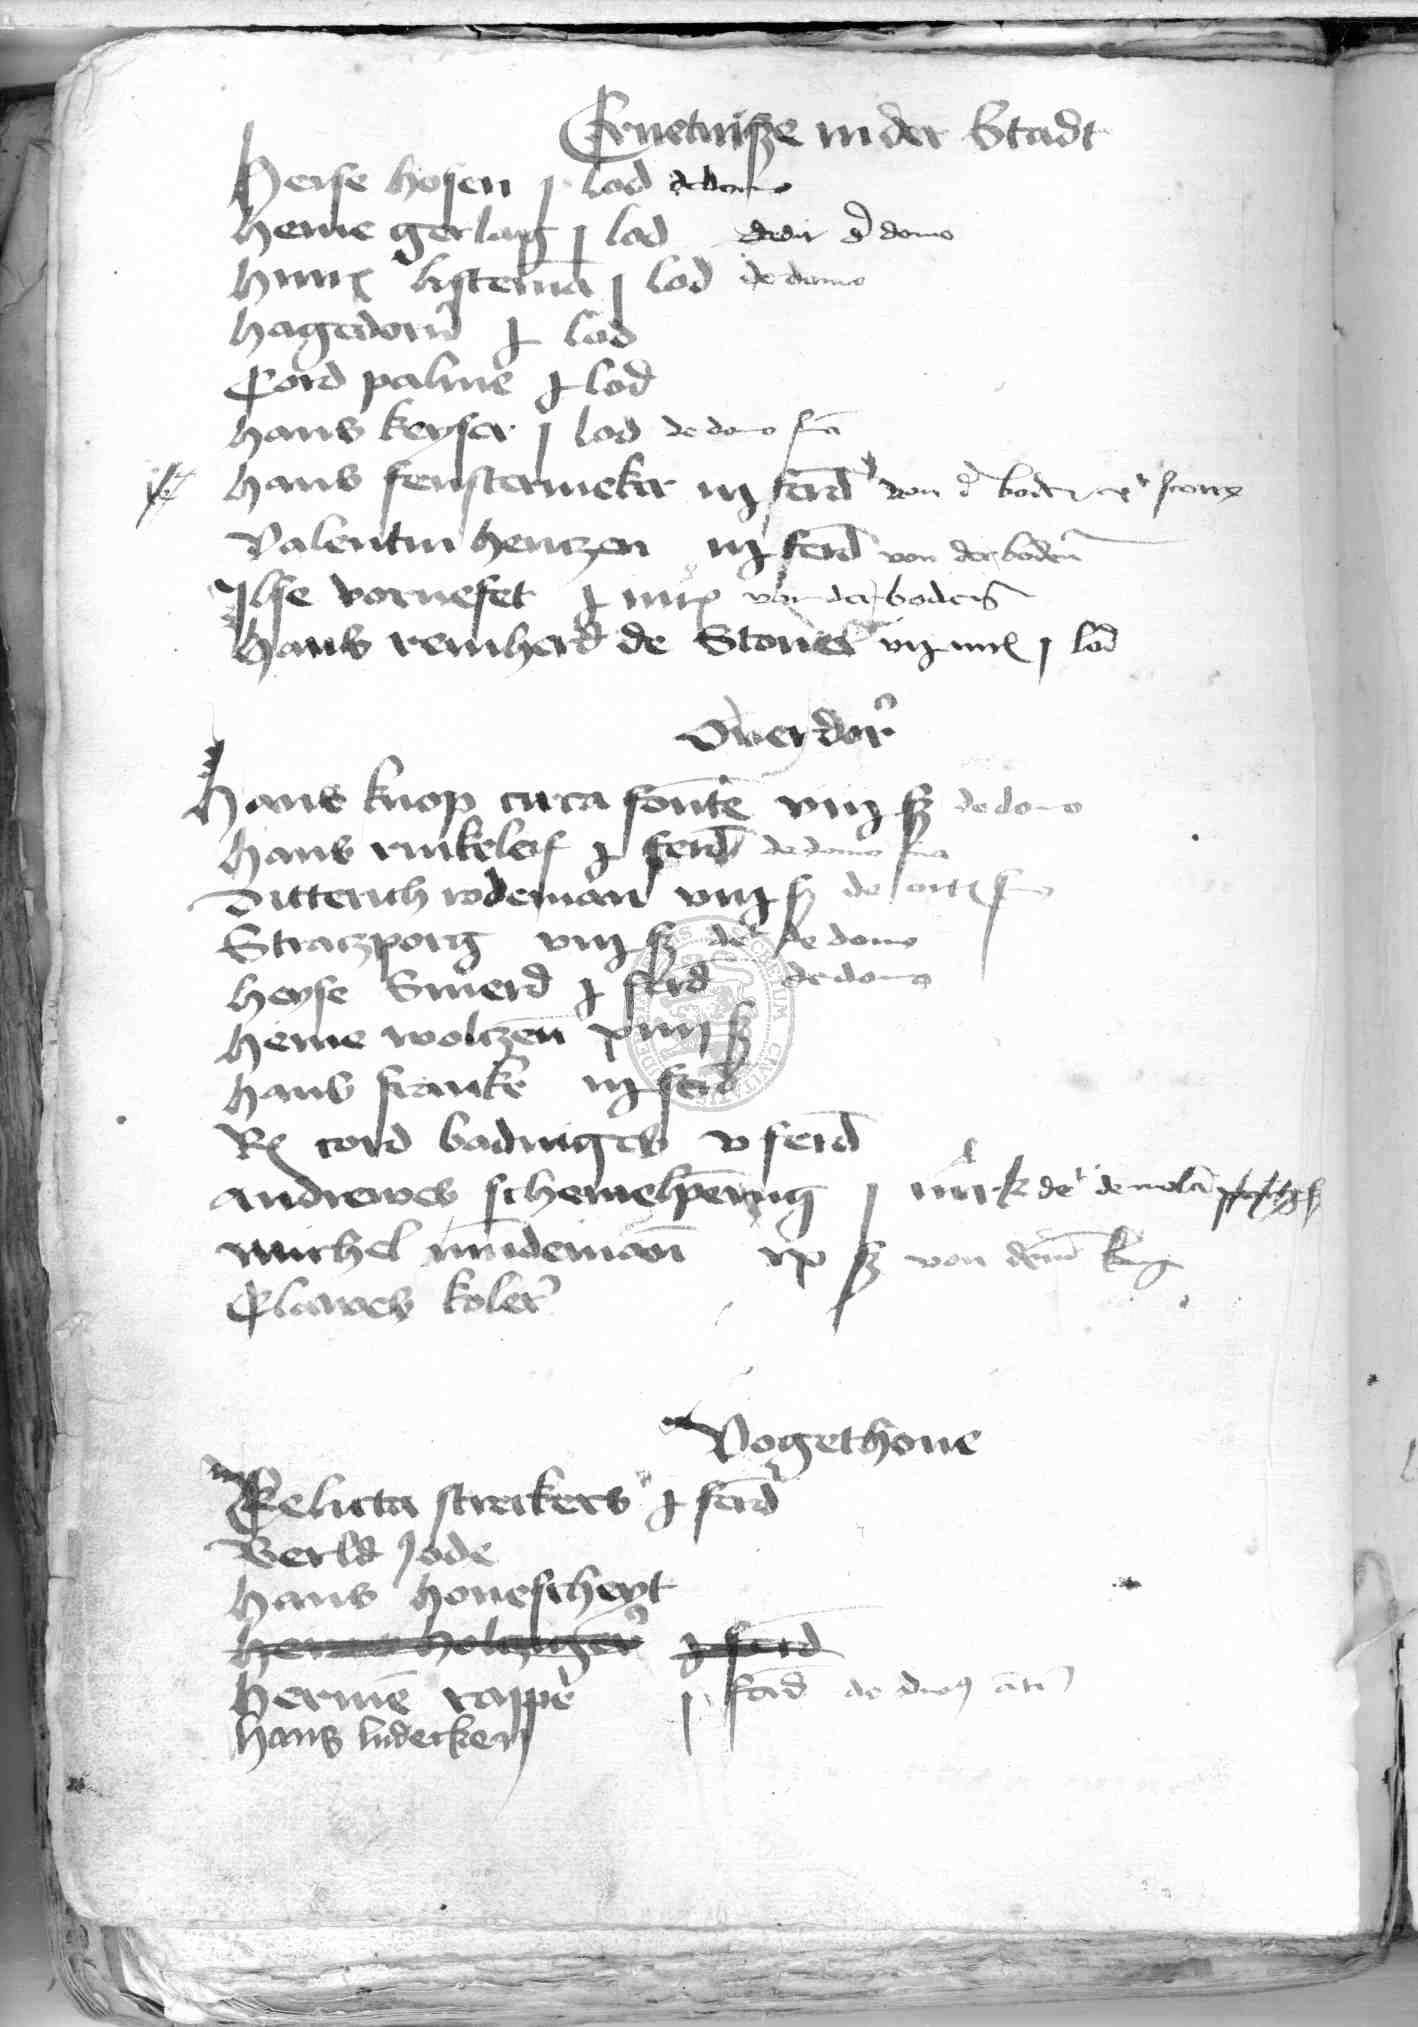 Ernetnisze in der Stadt
Heise hosen j lod de domo
heine gerlaig j lod dedit de domo
hinrik listeman j lod de domo
hagedorn j lod
Cord palme j lod
hans keyser j lod de domo sua
hans fenstermeker iij ferd von der boden
Valentin hentzen iij ferd von der boden
Ilse vornefet j mrk von der boden
Hans reinherd de Stouer vij mrk j lod
Overdor
Hans knop circa fonte viij ß de domo
hans rinkeleif j ferd de domo sua
Ditterich rodeman viij ß de
Stratzporg viij ß de domo
heyse Smerd j ferd de domo
heine woltzen xiiij ß
hans franke iij ferd
Rel cord badinges v ferd
andrewes schemelpenig j mrk de molen
michel mundeman ix ß von dem
Clawes koler
Vogethoue
Relicta streikers j ferd
Berld Jode
hans houescheyt
holtziger j ferd
Hermen rappe j ferd de
hans ludecken